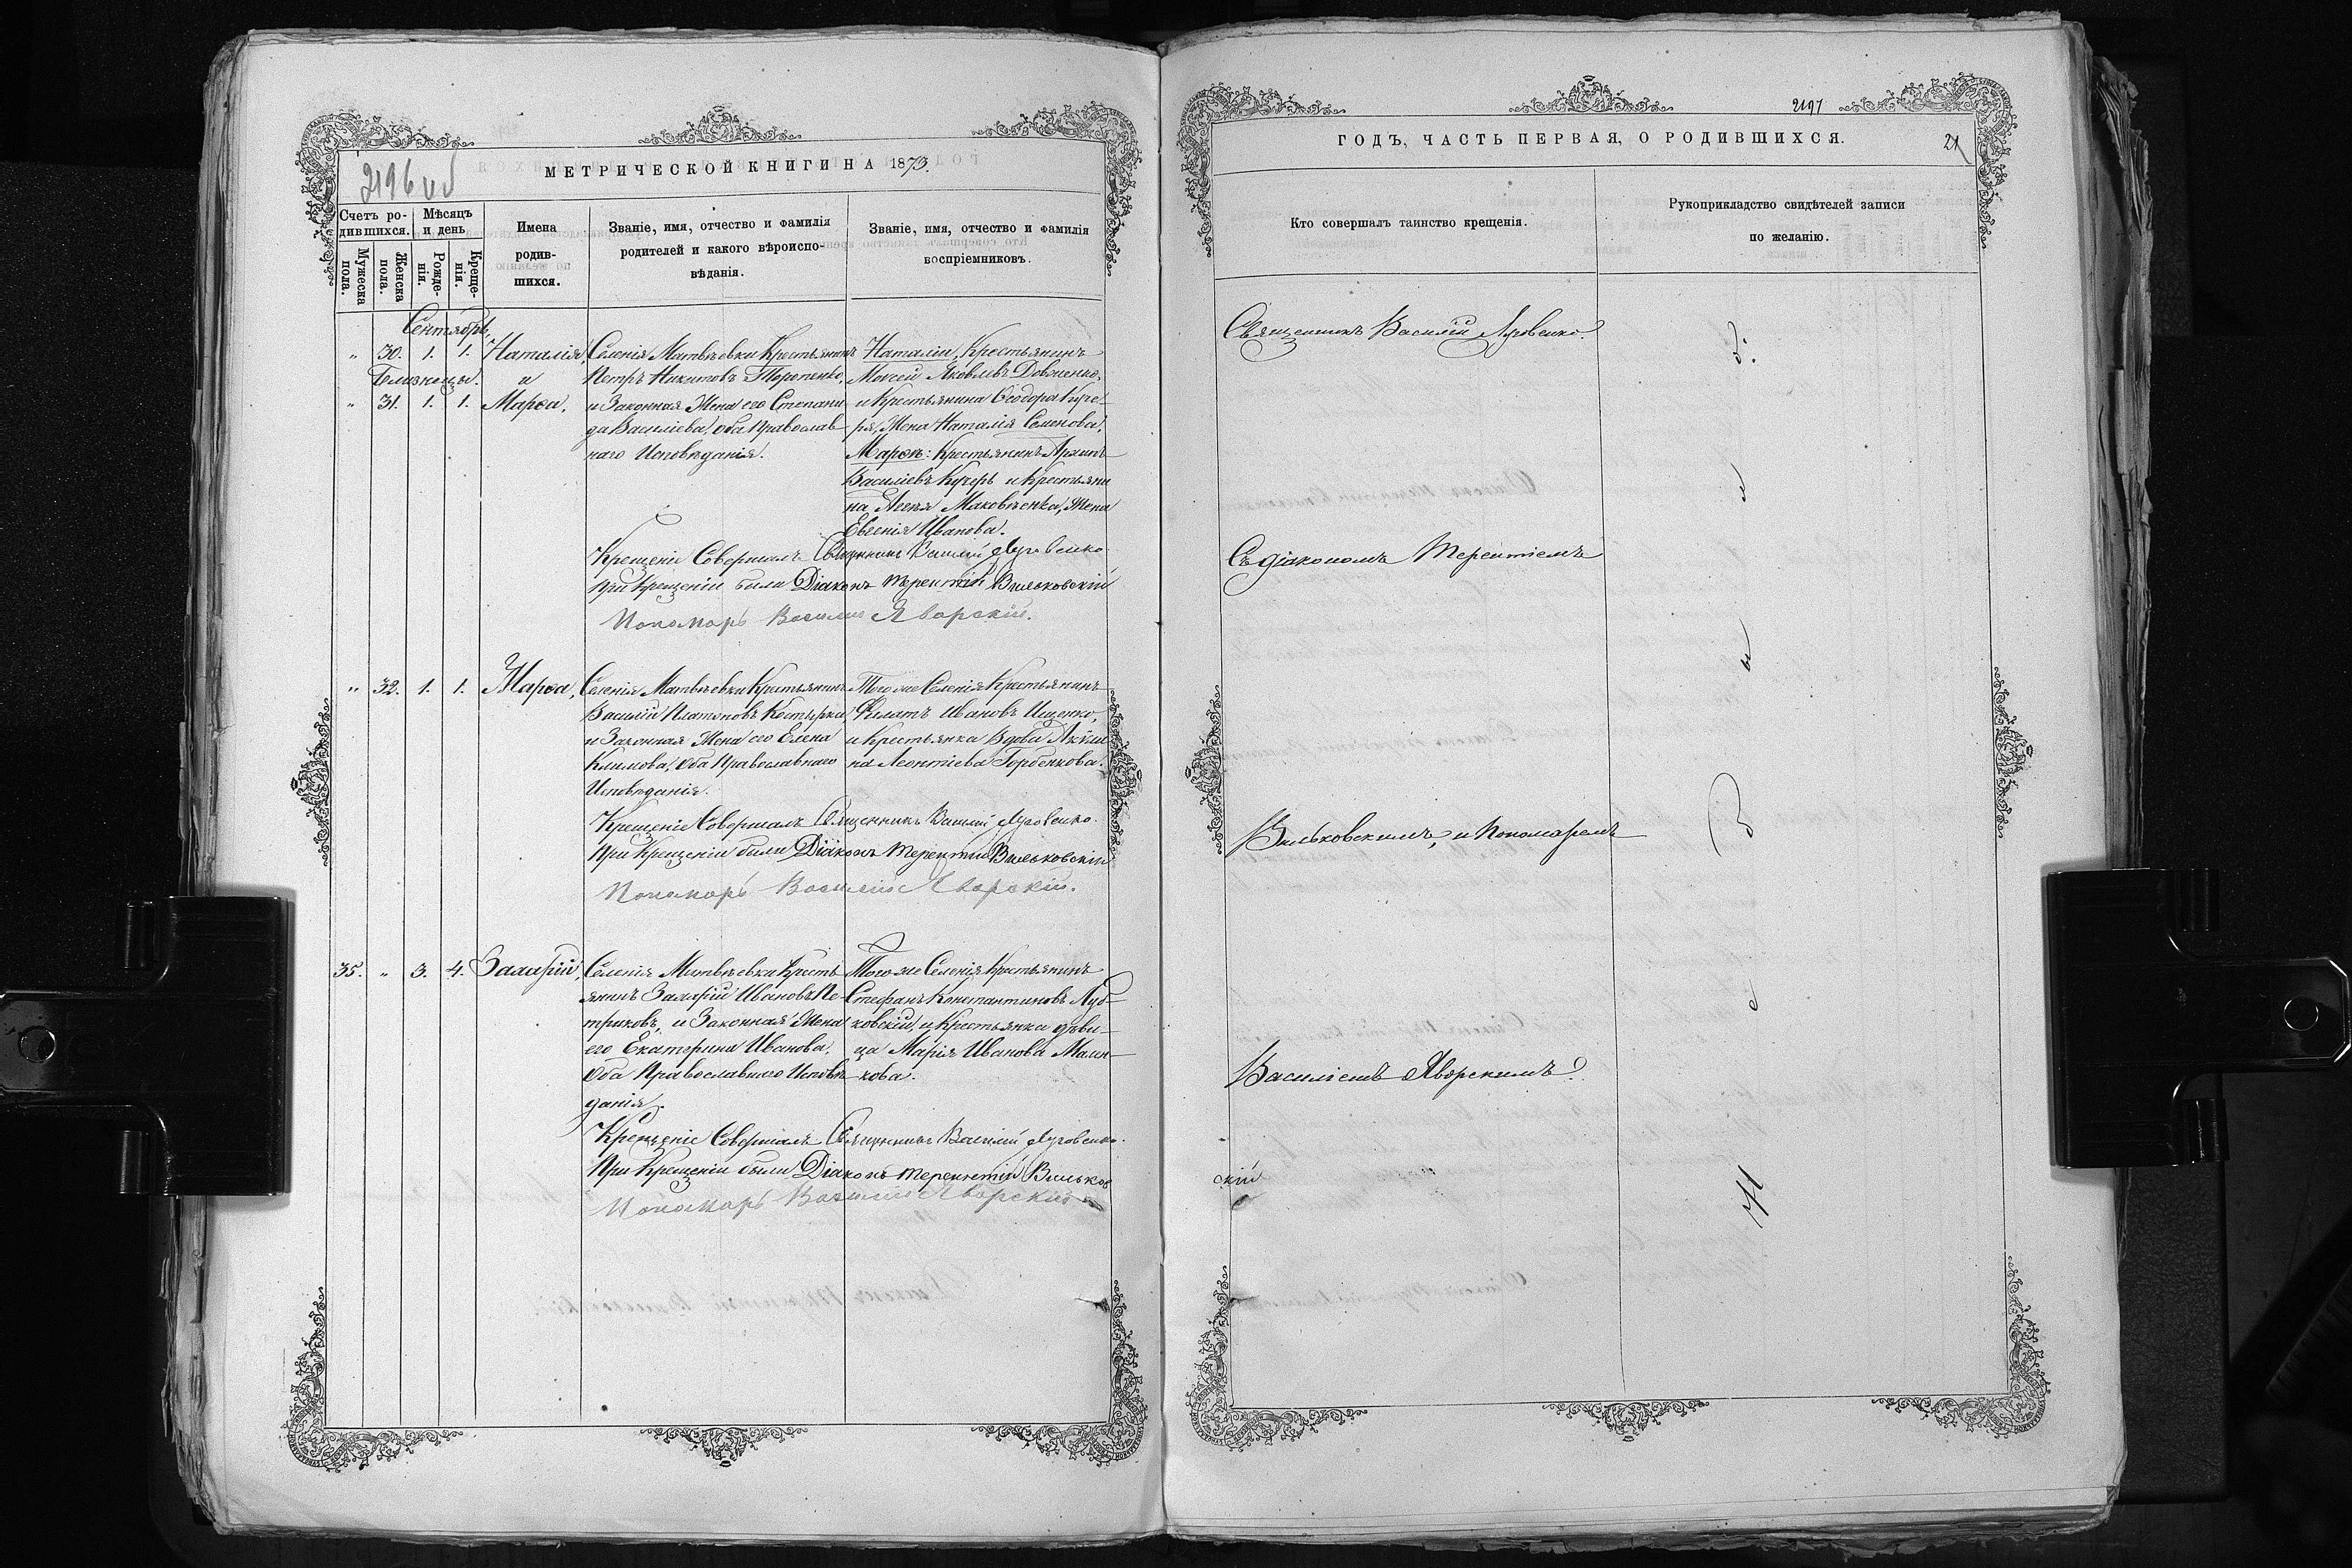 2196 об
МЕТРИЧЕСКОЙ КНИГИ НА 1873.
Счетъ ро-
дившихся.
Мѣсяцъ
и день
Мужеска
пола.
Женска
пола.
Рожде-
нія.
Креще-
нія.
Имена
родив-
шихся.
Званіе, имя, отчество и фамилія
родителей и какого вѣроиспо-
вѣданія.
Званіе, имя, отчество и фамилія
воспріемниковъ.
Сентябрь,
" 30. 1. 1. Наталія,
Близнецы. и
" 31. 1. 1. Марѳа,
Селенія Матвѣевки Крестьянинъ
Петръ Никитовъ
и Законная Жена его Степани
да Василіева, оба Православ
наго Исповѣданія.
Наталіи, Крестьянинъ
Моѵсей Яковлевъ Довженко,
и Крестьянина Ѳеодора Куче-
ря, Жена Наталія Семенова,
Марѳы: Крестьянинъ Архипъ
Василіевъ Кучеръ и Крестьяни
на Маковѣенка, Жена
Евгенія Иванова.
Крещеніе Совершалъ Священникъ Василій Луговенко
При Крещеніи были Діаконъ Терентій Вильковскій
Пономарь Василій Яворскій.
" 32. 1. 1. Марѳа,
Селенія Матвѣевки Крестьянинъ
Василій Платоновъ Костырка
и Законная Жена его Елена
Климова, Оба Православнаго
Исповѣданія.
Того же Селенія Крестьянинъ
Филатъ Ивановъ Ищенко,
и Крестьянка Вдова Акили
на Леонтіева Горбенкова.
Крещеніе Совершалъ Священникъ Василій Луговенко.
При Крещеніи были Діаконъ Терентій Вильковскій
Пономарь Василій Яворскій.
35. " 3. 4. Захарій,
Селенія Матвѣевки Кресть
янинъ Захарій Ивановъ Пе-
триковъ, и Законная Жена
его Екатерина Иванова,
Оба Православнаго Исповѣ
данія.
Того же Селенія Крестьянинъ
Стефанъ Константиновъ Луб-
ковскій, и Крестьянка дѣви-
ца Марія Иванова Мали-
кова.
Крещеніе Совершалъ Священникъ Василій Луговенко.
При Крещеніи были Діаконъ Терентій Вильков
скій
Пономарь Василій Яворскій
2197
ГОДЪ, ЧАСТЬ ПЕРВАЯ, О РОДИВШИХСЯ.
21
Кто совершалъ таинство крещенія.
Рукоприкладство свидѣтелей записи
по желанію.
Священникъ Василій Луговенко.
Съ діакономъ Терентіемъ
Вильковскимъ, и Пономаремъ
Василіемъ Яворскимъ.